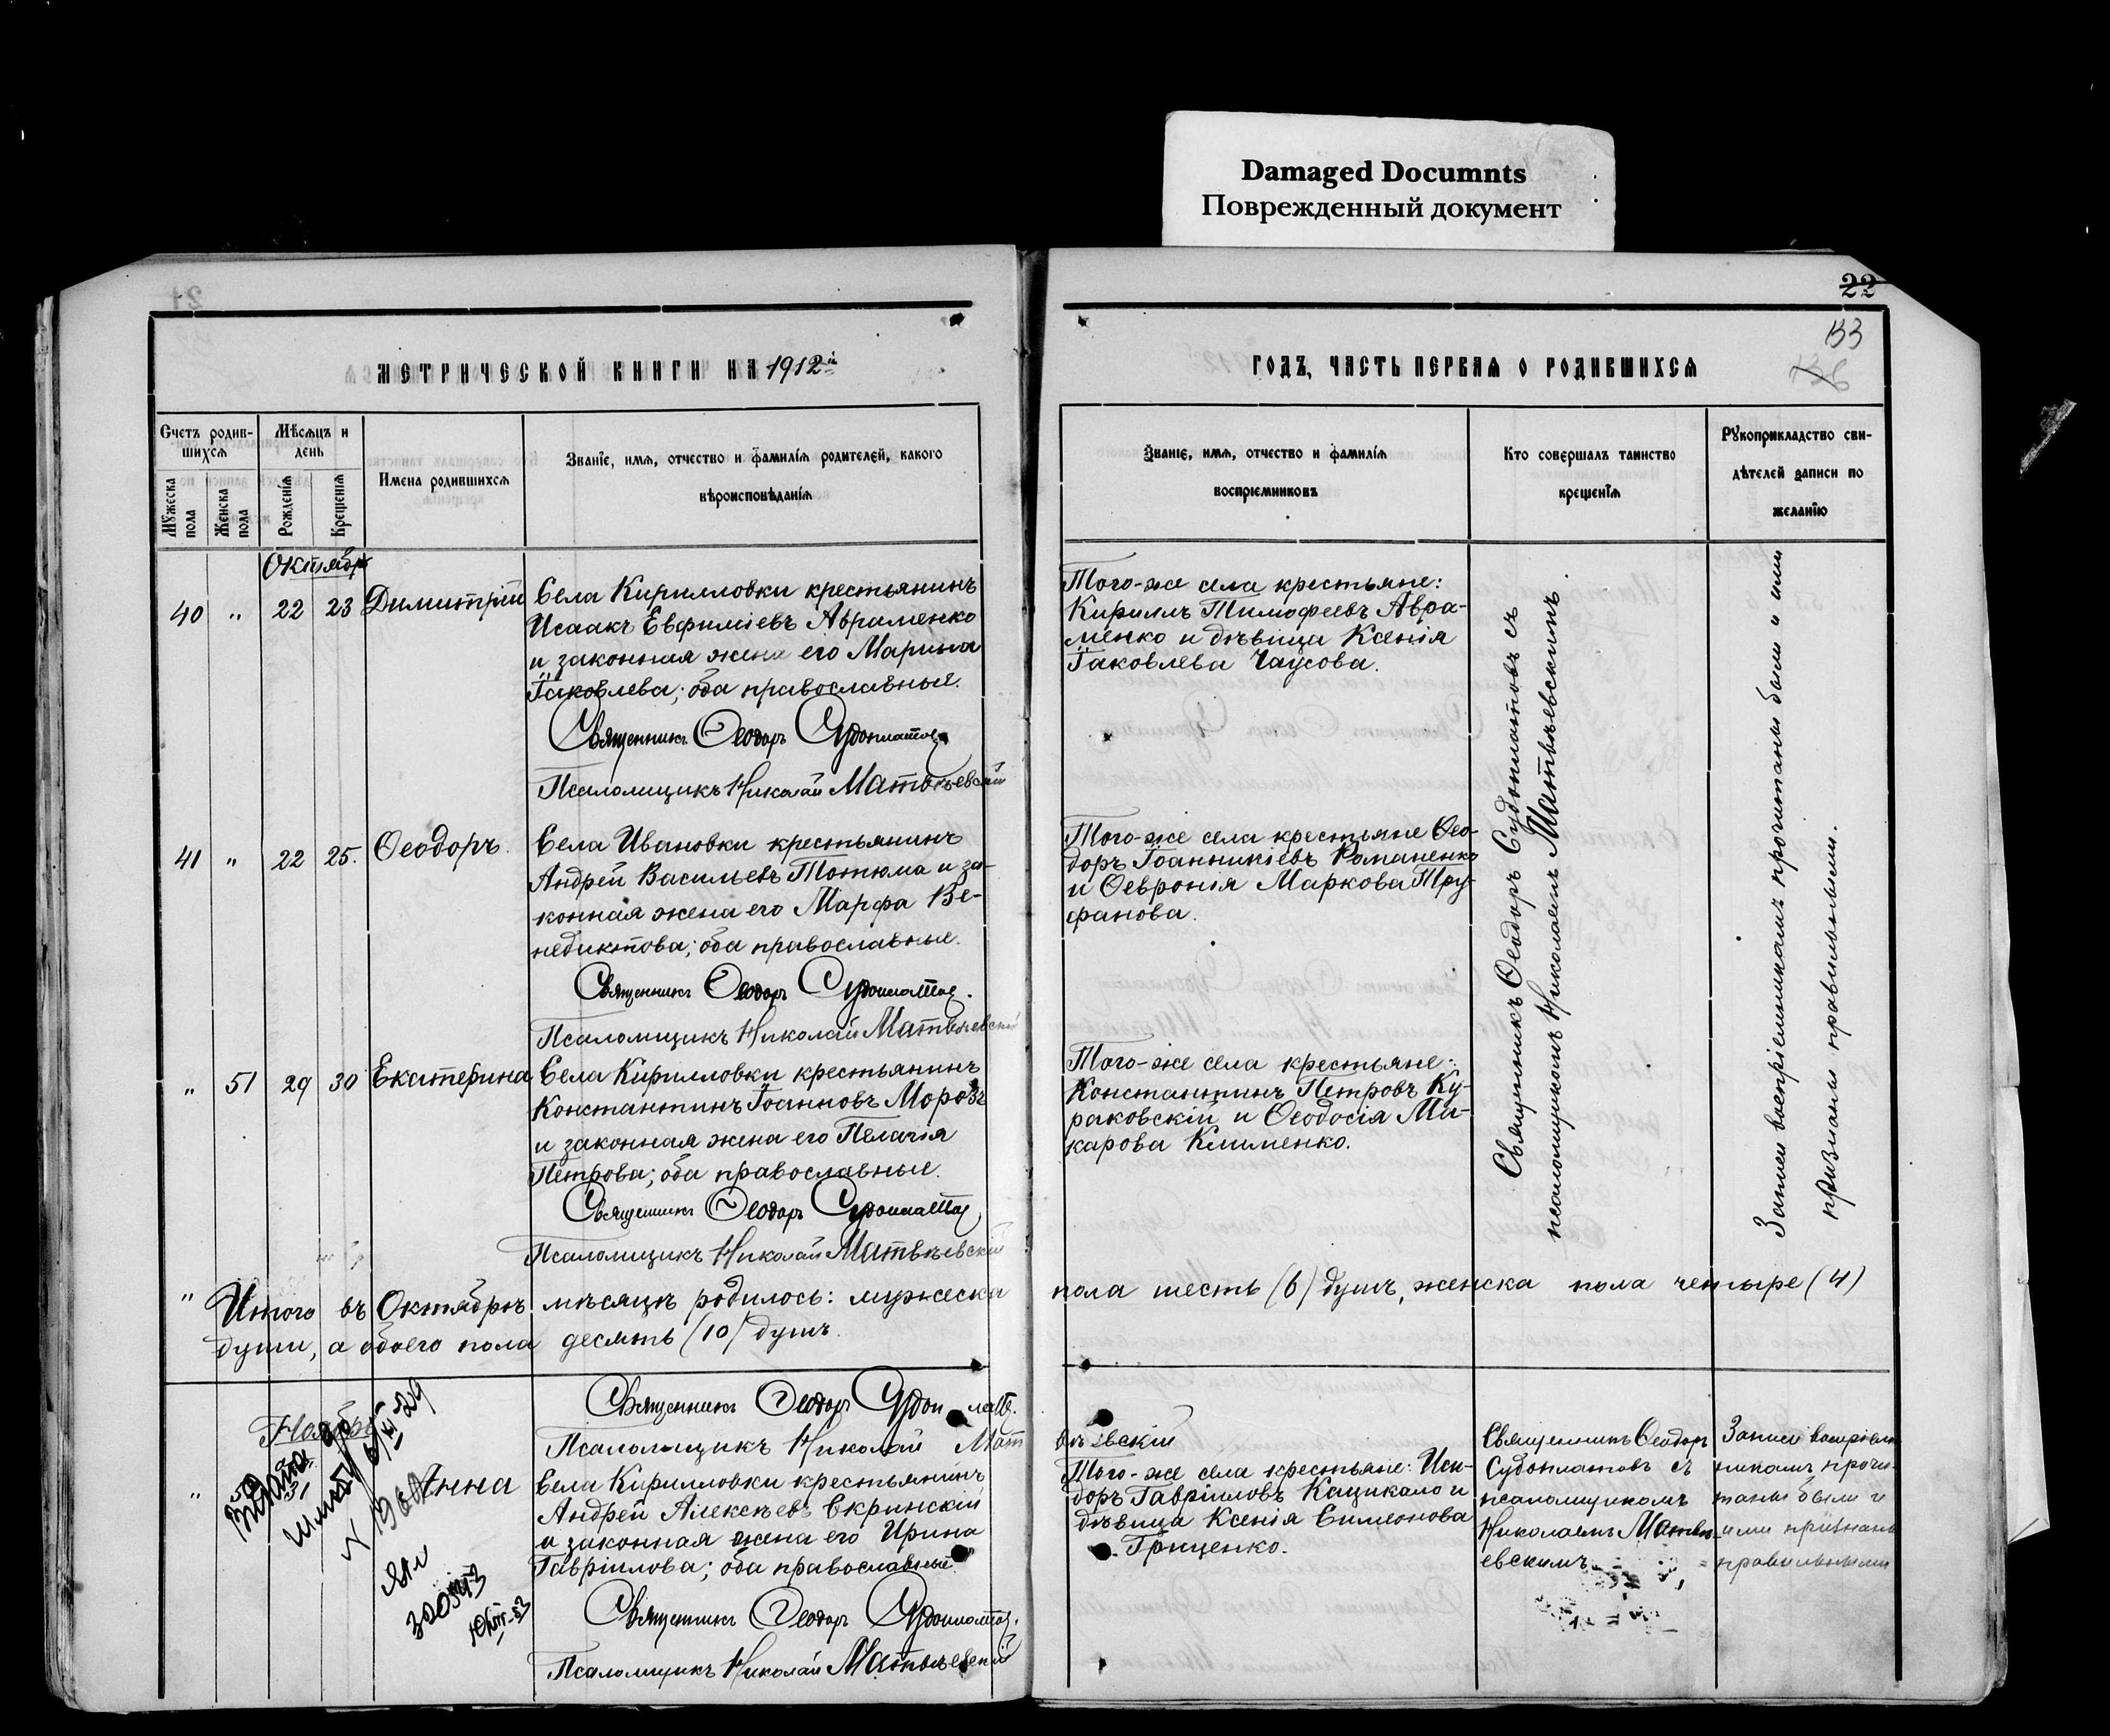 Damaged Documnts
Поврежденный документ
22
133
МЕТРИЧЕСКОЙ КНИГИ НА 1912й
ГОДЪ, ЧАСТЬ ПЕРВАЯ О РОДИВШИХСЯ
Счетъ родив-
шихся
Мѣсяцъ и
день
Мужеска
пола
Женска
пола
Рожденія
Крещенія
Имена родившихся
Званіе, имя, отчество и фамилія родителей, какого
вѣроисповѣданія
Званіе, имя, отчество и фамилія
воспріемниковъ
Кто совершалъ таинство
крещенія
Рукоприкладство сви-
дѣтелей записи по
желанію
Октябрь
40 " 22 23 Димитрій
Села Кирилловки крестьянинъ
Исаакъ Евфиміевъ Авраменко
и законная жена его Марина
Іаковлева; оба православные.
Священникъ Ѳеодоръ Судоплатов
Псаломщикъ Николай Матвѣевскій
Того-же села крестьяне:
Кириллъ Тимофеевъ Авра-
менко и дѣвица Ксенія
Іаковлева Чаусова.
41 " 22 25. Ѳеодоръ.
Села Ивановки крестьянинъ
Андрей Васильевъ Тотюма и за-
конная жена его Марфа Ве-
недиктова; оба православные.
Священникъ Ѳеодоръ Судоплатов.
Псаломщикъ Николай Матвѣевскій
Того-же села крестьяне Ѳео-
доръ Іоанникіевъ Романенко
и Ѳевронія Маркова Тру-
фанова.
" 51 29 30 Екатерина
Села Кирилловки крестьянинъ
Константинъ Іоанновъ Морозъ
и законная жена его Пелагія
Петрова; оба православные.
Священникъ Ѳеодоръ Судоплатов
Псаломщикъ Николай Матвѣевскій
Того-же села крестьяне:
Константинъ Петровъ Ку-
раковскій и Ѳеодосія Ма-
карова Клименко.
Священникъ Ѳеодоръ Судоплатовъ съ
псаломщикомъ Николаемъ Матвѣевскимъ.
Записи воспріемникамъ прочитаны были и ими
признаны правильными.
" Итого въ Октябрѣ мѣсяцѣ родилось: мужеска пола шесть (6) душъ, женска пола четыре (4)
души, а обоего пола десять (10) душъ.
Священникъ Ѳеодоръ Судоплатов.
Псаломщикъ Николай Матвѣевскій
Ноябрь
" Анна
Села Кирилловки крестьянинъ
Андрей Алексѣевъ Скринскій
и законная жена его Ирина
Гавріилова; оба православные.
Священникъ Ѳеодоръ Судоплатов.
Псаломщикъ Николай Матвѣевскій
Того-же села крестьяне: Иси-
доръ Гавріиловъ Кацикало и
дѣвица Ксенія Симеонова
Гриценко.
Священникъ Ѳеодоръ
Судоплатовъ съ
псаломщикомъ
Николаемъ Матвѣ-
евскимъ.
Записи воспріем-
никамъ прочи-
таны были и
ими признаны
правильными